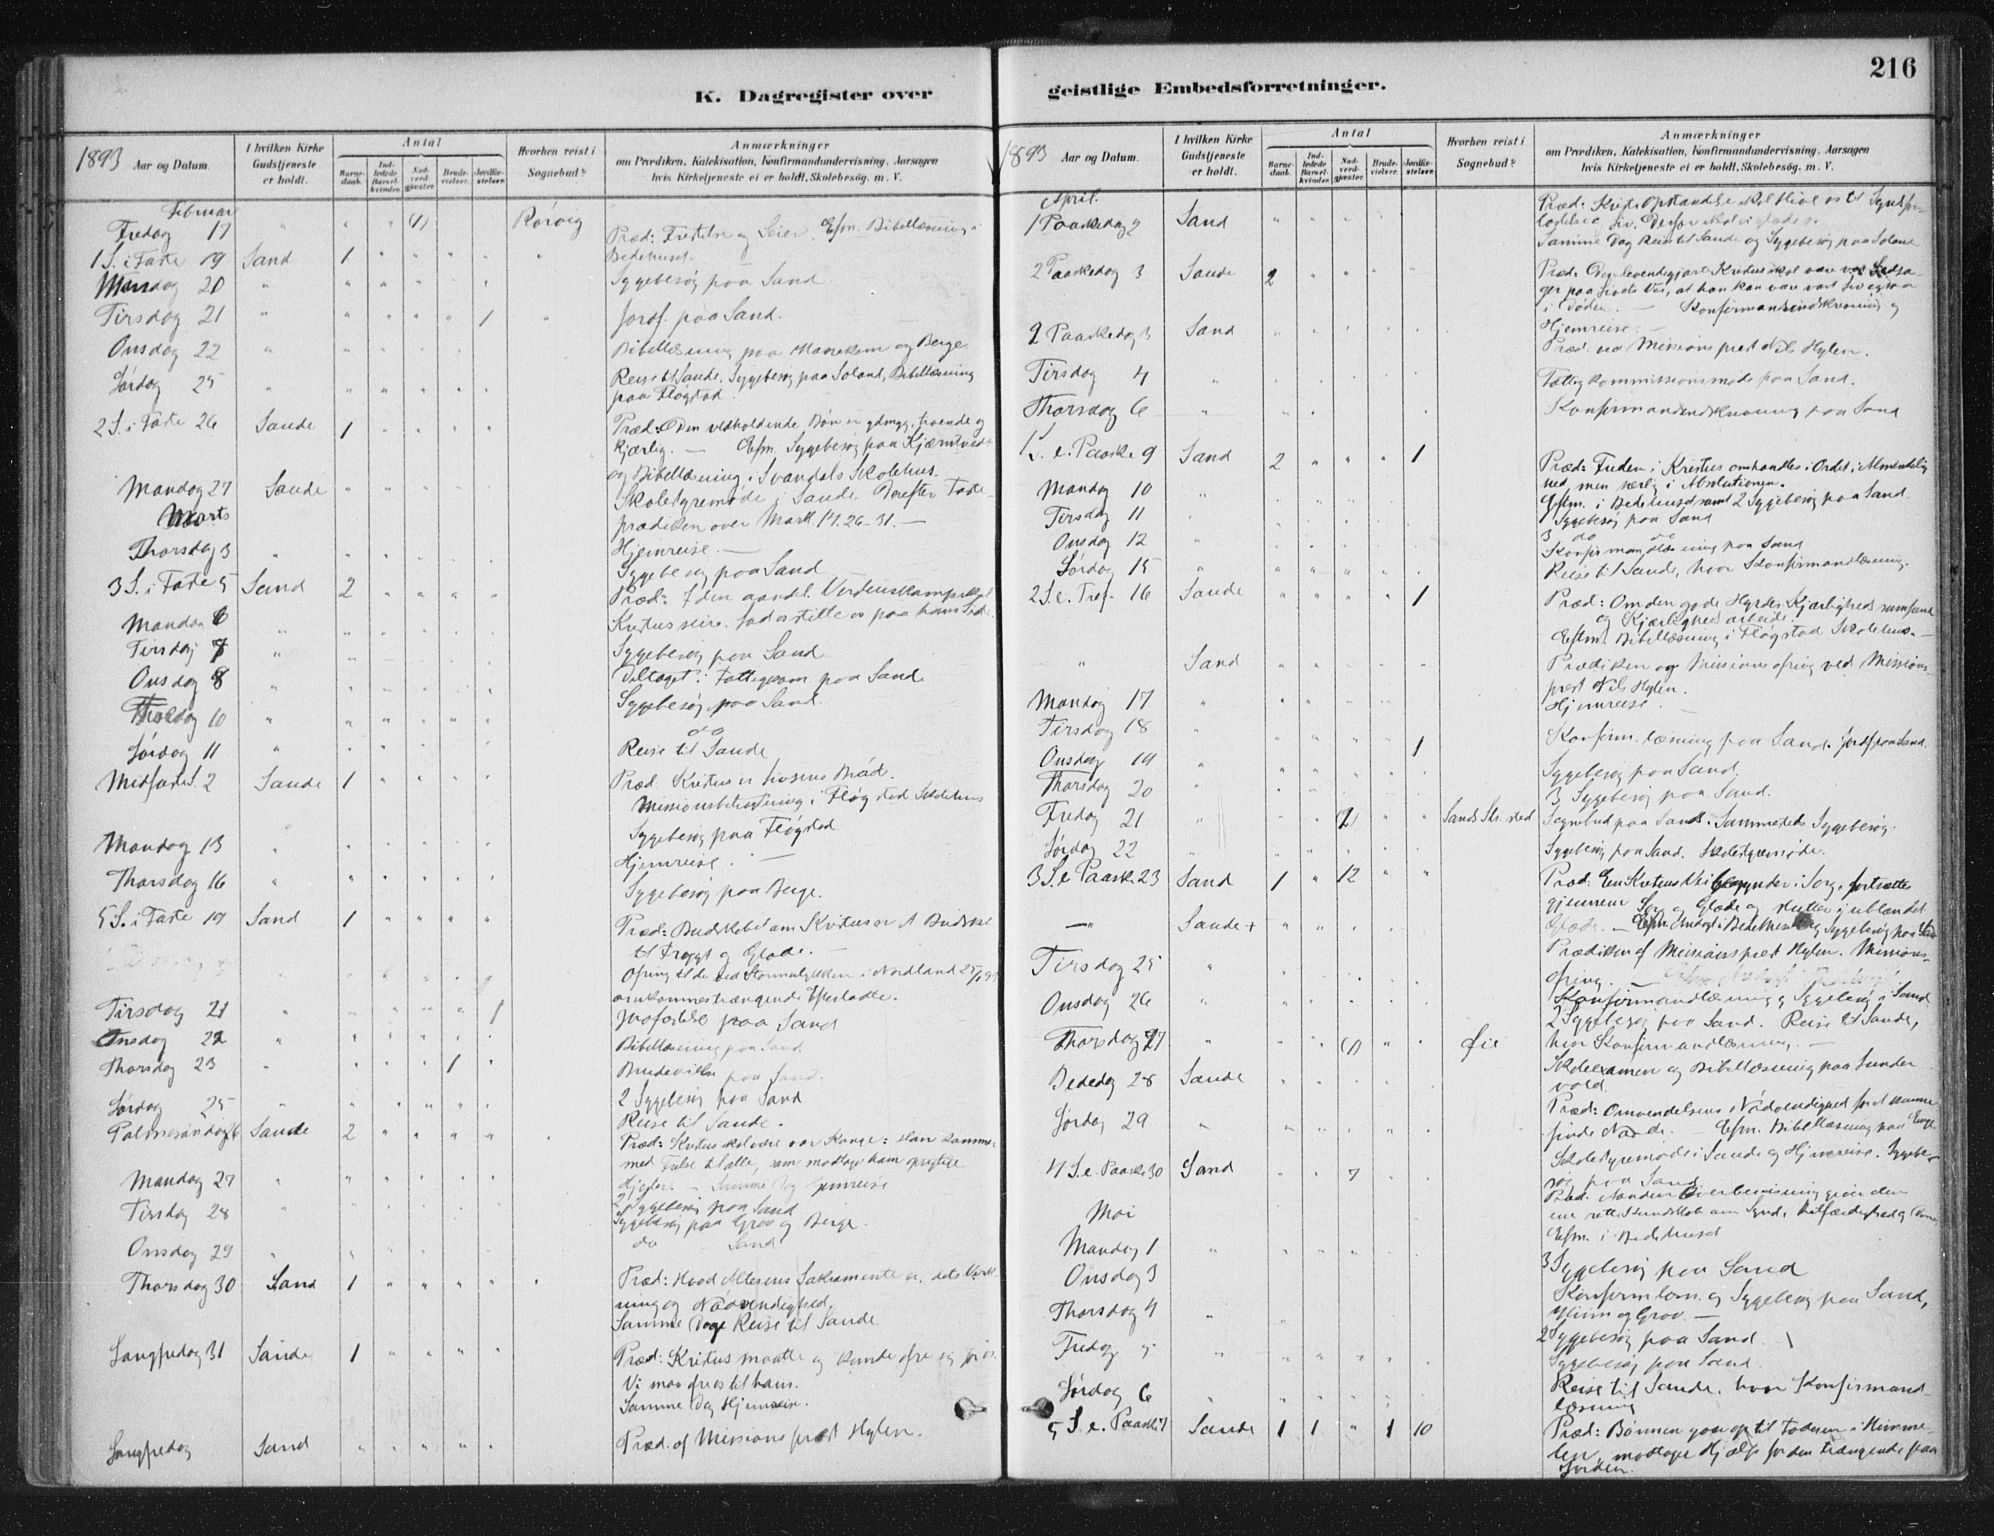 K. Dagregister over
1893
Aar og Datum.
I hvilken Kirke Gudstjeneste er holdt.
Antal
Barnedaab.
Indledede Barselkvinder.
Nadverdgjester
Brudevielser.
Jordfæstelser
Hvorhen reist i Sognebud?
Anmærkninger
om Prædiken, Katekisation, Konfirmandundervisning, Aarsagen
hvis Kirketjeneste ei er holdt, Skolebesøg. m. V.
Februar
Fredag 17 " " " (1) Rørvig
1 S. i Faste 19 Sand 1 " " " " " Præd: Fristelse og Seier. Efm. Bibellæsning i
Bedehuset.
Mandag 20 " " " Sygebesøg paa Sand
Tirsdag 21 " " " " " 1 " Jordf. paa Sand.
Onsdag 22 " Bibellæsning paa og Berge
Lørdag 25 " Reise til Sande. Sygebesøg paa Soland, Bibellæsning
paa Fløgstad.
2 S. i Faste 26 Sande 1 " " " " Præd: Den vedholdende Bøn er ydmyg, troende og
kjærlig. — Efm. Sygebesøg paa
og Bibellæsning i Svandals Skolehus.
Mandag 27 Sande " " " " " Skolestyremøde i Sande. Derefter Faste-
prædiken over Mark. 14. 26-31. —
Marts
Hjemreise. —
Thorsdag 3 " Sygebesøg paa Sand
3 S. i Faste 5 Sand 2 " " " " Præd: I den aandel. Verdenskamp skal
Kristus seire. Lad os stille os paa hans Side.
Mandag 6 " Sygebesøg paa Sand
Tirsdag 7 " Deltaget i Fattigkom paa Sand
Onsdag 8 " Sygebesøg paa Sand.
10 " do
Lørdag 11 " Reise til Sande
Midfaste S. 2 Sande 1 " " " " Præd Kristus er Brød.
Missionsbetragtning i Fløgstad Skolehus
Sygebesøg paa Fløgstad
Mandag 13 " Hjemreise. —
Thorsdag 16 " Sygebesøg paa Berge.
5 S. i Faste 19 Sand 1 " " " " Præd: Budskabet om Kristus er
til Frygt og Glæde.
Ofring til de ved Stormulykken i Nordland 25/1 93
omkomnes trængende Efterladte.
Tirsdag 21 " " " " " 1 paa Sand
Onsdag 22 " Bibellæsning paa Sand
Thorsdag 23 " " " " 1 " Brudevielse paa Sand.
Lørdag 25 " 2 Sygebesøg paa Sand
Reise til Sande.
Palmesøndag 26 Sande 2 " " " " " Præd: Kristus skal være vor Konge: Han kommer
med Frelse til alle, som modtage ham oprigtige
Hjerter. — Samme Dag Hjemreise
Mandag 27 " 2 Sygebesøg paa Sand
Tirsdag 28 " Sygebesøg paa Grov og Berge.
Onsdag 29 " do — Sand
Thorsdag 30 Sand 1 " " " " " Præd: Hvad Alterens Sakramente er, dets Virk-
ning og Nødvendighed
Samme Dage Reise til Sande
Langfredag 31 Sande 1 " " " " Præd: Kristus maatte og kunde ofre sig for os.
Vi maa ofres til ham.
Samme Dag Hjemreise.
Langfredag Sand " " " " " Præd. af Missionsprest Hylen.
geistlige Embedsforretninger.
216
1893
Aar og Datum.
I hvilken Kirke Gudstjeneste er holdt.
Antal
Barnedaab.
Indledede Barselkvinder.
Nadverdgjester
Brudevielser.
Jordfæstelser.
Hvorhen reist i Sognebud?
Anmærkninger
om Prædiken, Katekisation, Konfirmandundervisning, Aarsagen
hvis Kirketjeneste ei er holdt, Skolebesøg. m. V.
April.
1 Paaskedag 2 Sand " " " " " Præd: Kristi Opstandelse skal blive os til Syndsfor-
ladelse og Liv. Derfor skal vi glæde os.
Samme Dag Reise til Sande og Sygebesøg paa Soland
2 Paaskedag 3 Sande 2 " " " " Præd. Den levendegjorte Kristus skal være vor Ledsa-
ger paa Livets Vei, at han kan være vort Liv ogsaa
i Døden. — Konfirmandindskrivning og
Hjemreise. —
2 Paaskedag 3 Sand " Præd. ved Missionsprest Nils Hylen.
Tirsdag 4 " Fattigkommissionsmøde paa Sand.
Thorsdag 6 " Konfirmandindskrivning paa Sand
1 S. e. Paaske 9 Sand 2 " " " 1 Præd: Freden i Kristus omhandles i Ordet i Almindelig-
hed, men særlig i Absolutionen.
Eftm. i Bedehuset samt 2 Sygebesøg paa Sand
Mandag 10 " 1 Sygebesøg paa Sand
Tirsdag 11 " 3 do do
Onsdag 12 " Konfirmandlæsning paa Sand
Lørdag 15 " Reise til Sande, hvor Konfirmandlæsning.
2 S. e. 16 Sande " " " " 1 Præd: Om den gode Hyrdes Kjærligheds
og Kjærligheds arbeide.
Eftm. Bibellæsning i Fløgstad Skolehus. —
" Sand " Prædiken og Missionsofring ved Missions-
prest Nils Hylen.
Mandag 17 " Hjemreise. —
Tirsdag 18 " 1 Konfirm. læsning paa Sand. Jordf. paa Sand.
Onsdag 19 " Sygebesøg paa Sand.
Thorsdag 20 " 3 Sygebesøg paa Sand.
Fredag 21 " Sands Sognebud paa Sand. Sammesteds Sygebesøg.
Lørdag 22 " Sygebesøg paa Sand. Skolestyremøde.
3 S. e. Paaske 23 Sand 1 " 12 " " Præd: En Kristens Vei begynder i Sorg, fortsætte
gjennem Sorg og Glæde og slutter i ublandet
Glæde. —
— " — Sande + Prædiken af Missionsprest Hylen. Missions-
ofring. —
Tirsdag 25 " Konfirmandlæsning og Sygebesøg i Sand
Onsdag 26 " 2 Sygebesøg paa Sand. Reise til Sande,
Thorsdag 27 " " " (1) " " Øie hvor Konfirmandlæsning. —
Bededag 28 Sande Skoleexamen og Bibellæsning paa
Præd: Omvendelsens Nødvendighed for at kunne
finde Naade. — Efm. Bibellæsning paa
Lørdag 29 " Skolestyremøde i Sande og Hjemreise. Sygebe-
søg paa Sand
4 S. e. Paaske 30 Sand " " 7 Præd. Aandens Overbevisning giver den
ene rette Kundskab om Synd, Retfærdighed og Dom.
Efm. i Bedehuset
Mai
Mandag 1 " 3 Sygebesøg paa Sand
Onsdag 3 Konfirmlæsn. og Sygebesøg paa Sand,
og Grov. —
Thorsdag 4 " 2 Sygebesøg paa Sand
Fredag 5 " Sygebesøg paa Sand
Lørdag 6 " Reise til Sande, hvor Konfirmand-
læsning
5 S. e. Paaske 7 Sande 1 1 " 1 10 Præd: Bønnen gaar op til Faderen i Himme-
len, modtager Hjælp for den trængende paa
Jorden.